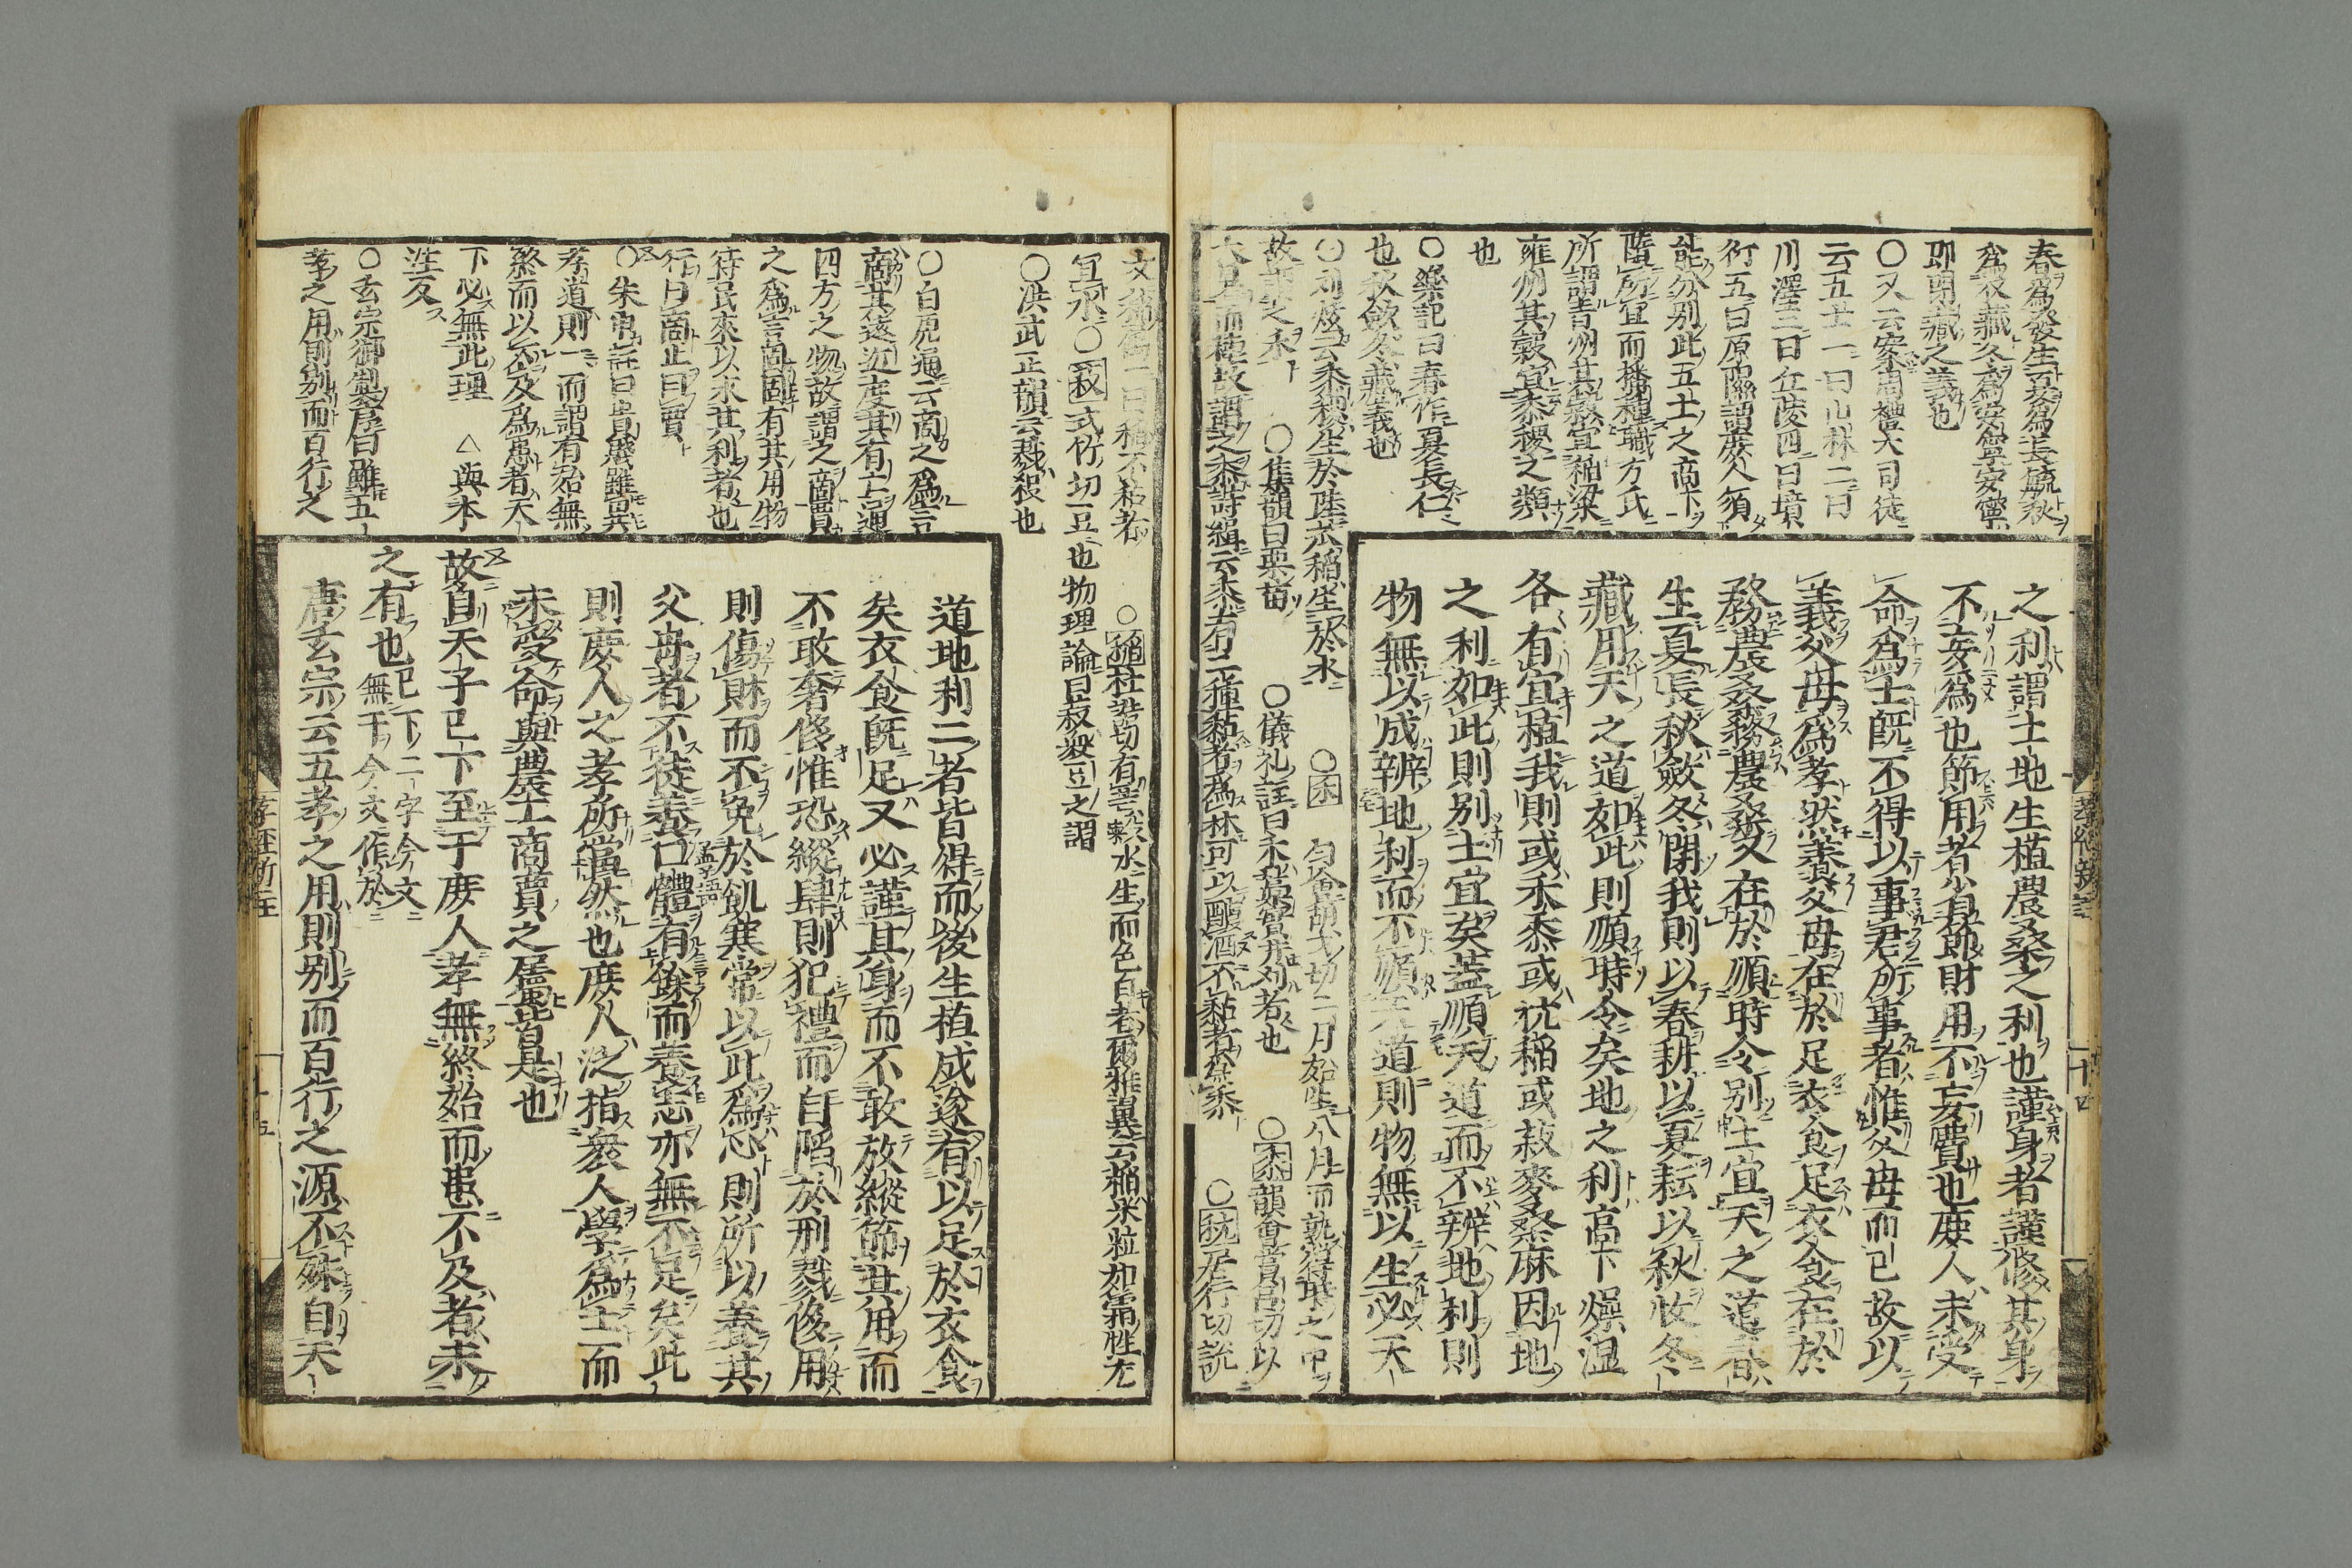 之利謂土地生植農桑之利也謹身者謹修其身
不妄爲也節用者省節財用不妄費也庶人未受
命爲士既不得以事君所事者惟父母而已故以
義父母爲孝然養父母在於足衣食足衣食在於
務農桑務農桑又在於順時令別土宜天之道春
生夏長秋斂冬閉我則以春耕以夏耘以秋收冬
藏用天之道如此則順時令矣地之利高下燥湿
各有宜植我則或禾黍或秔稲或菽麥桑麻因地
之利如此則别土宜矣蓋順天道而不辨地利則
物無以成辨地利而不順天道則物無以生必天
春爲發生夏爲長毓秋
爲收藏冬爲安寧安寧
即閉藏之義也
〇又云案周禮大司徒
云五土一曰山林二曰
川澤三曰丘陵四曰墳
衍五曰原隰謂庶人須
能分别此五土之高下
隨所宜而播種職方氏
所謂青州其穀宜稲梁
雍州其穀宜黍稷之類
也
〇樂記曰春作夏長仁
也秋斂冬藏義也
〇刘炫云黍稷生於陸苽稲生於水
〇禾
胡戈切二月始生八月而熟得時之中
故謂之禾
〇集韻曰粟苗
〇儀礼註曰禾
者也
〇黍韻會賞呂切以
大暑而種故謂之黍詩緝云黍有二種黏者爲秫可以釀酒不黏者爲黍
〇秔居行切説
孝經新註
十四
文稲属一曰稲不粘者
〇稲杜皓切有芒穀水生而色白者爾雅翼云稲米粒如霜性尤
宜水〇菽式竹切豆也物理論曰菽衆豆之謂
〇洪武正韻云戮殺也
〇白虎通云商之爲言
商其遠近度其有亡通
四方之物故謂之商賈
之爲言固固有其用物
待民來以求其利者也
行曰商止曰賈
〇朱申註曰貴賤雖異
孝道則一而謂有始無
終而以不及爲患者天
下必無此理　△與本
注反
〇玄宗御製序曰雖五
孝之用則别而百行之
道地利二者皆得而後生植成遂有以足於衣食
矣衣食既足又必謹其身而不敢放縱節其用而
不敢奢侈惟恐縱肆則犯禮而自陷於刑戮侈用
則傷財而不免於飢寒常以此爲心則所以養其
父母者不徒養口體有餘而養志亦無不足矣此
則庶人之孝所當然也庶人泛指衆人學爲士而
未受命與農工商賈之屬皆是也
故自天子已下至于庶人孝無終始而患不及者未
之有也已下二字今文無于今文作於
唐玄宗云五孝之用則别而百行之源不殊自天
孝經新註
十五